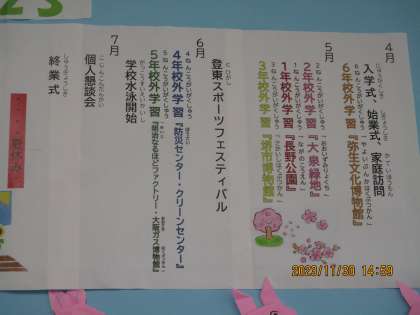 ４月
入学式、始業式、家庭訪問
６年校外学習『弥生文化博物館』
５月
２年校外学習『大泉緑地』
１年校外学習『長野公園』
３年校外学習『堺市博物館』
６月
登東スポーツフェスティバル
４年校外学習『防災センター・クリーンセンター』
５年校外学習『朝日なるほどファクトリー・大阪ガス博物館』
７月
学校水泳開始
個人懇談会
終業式
夏休み
2023/11/30 14:59